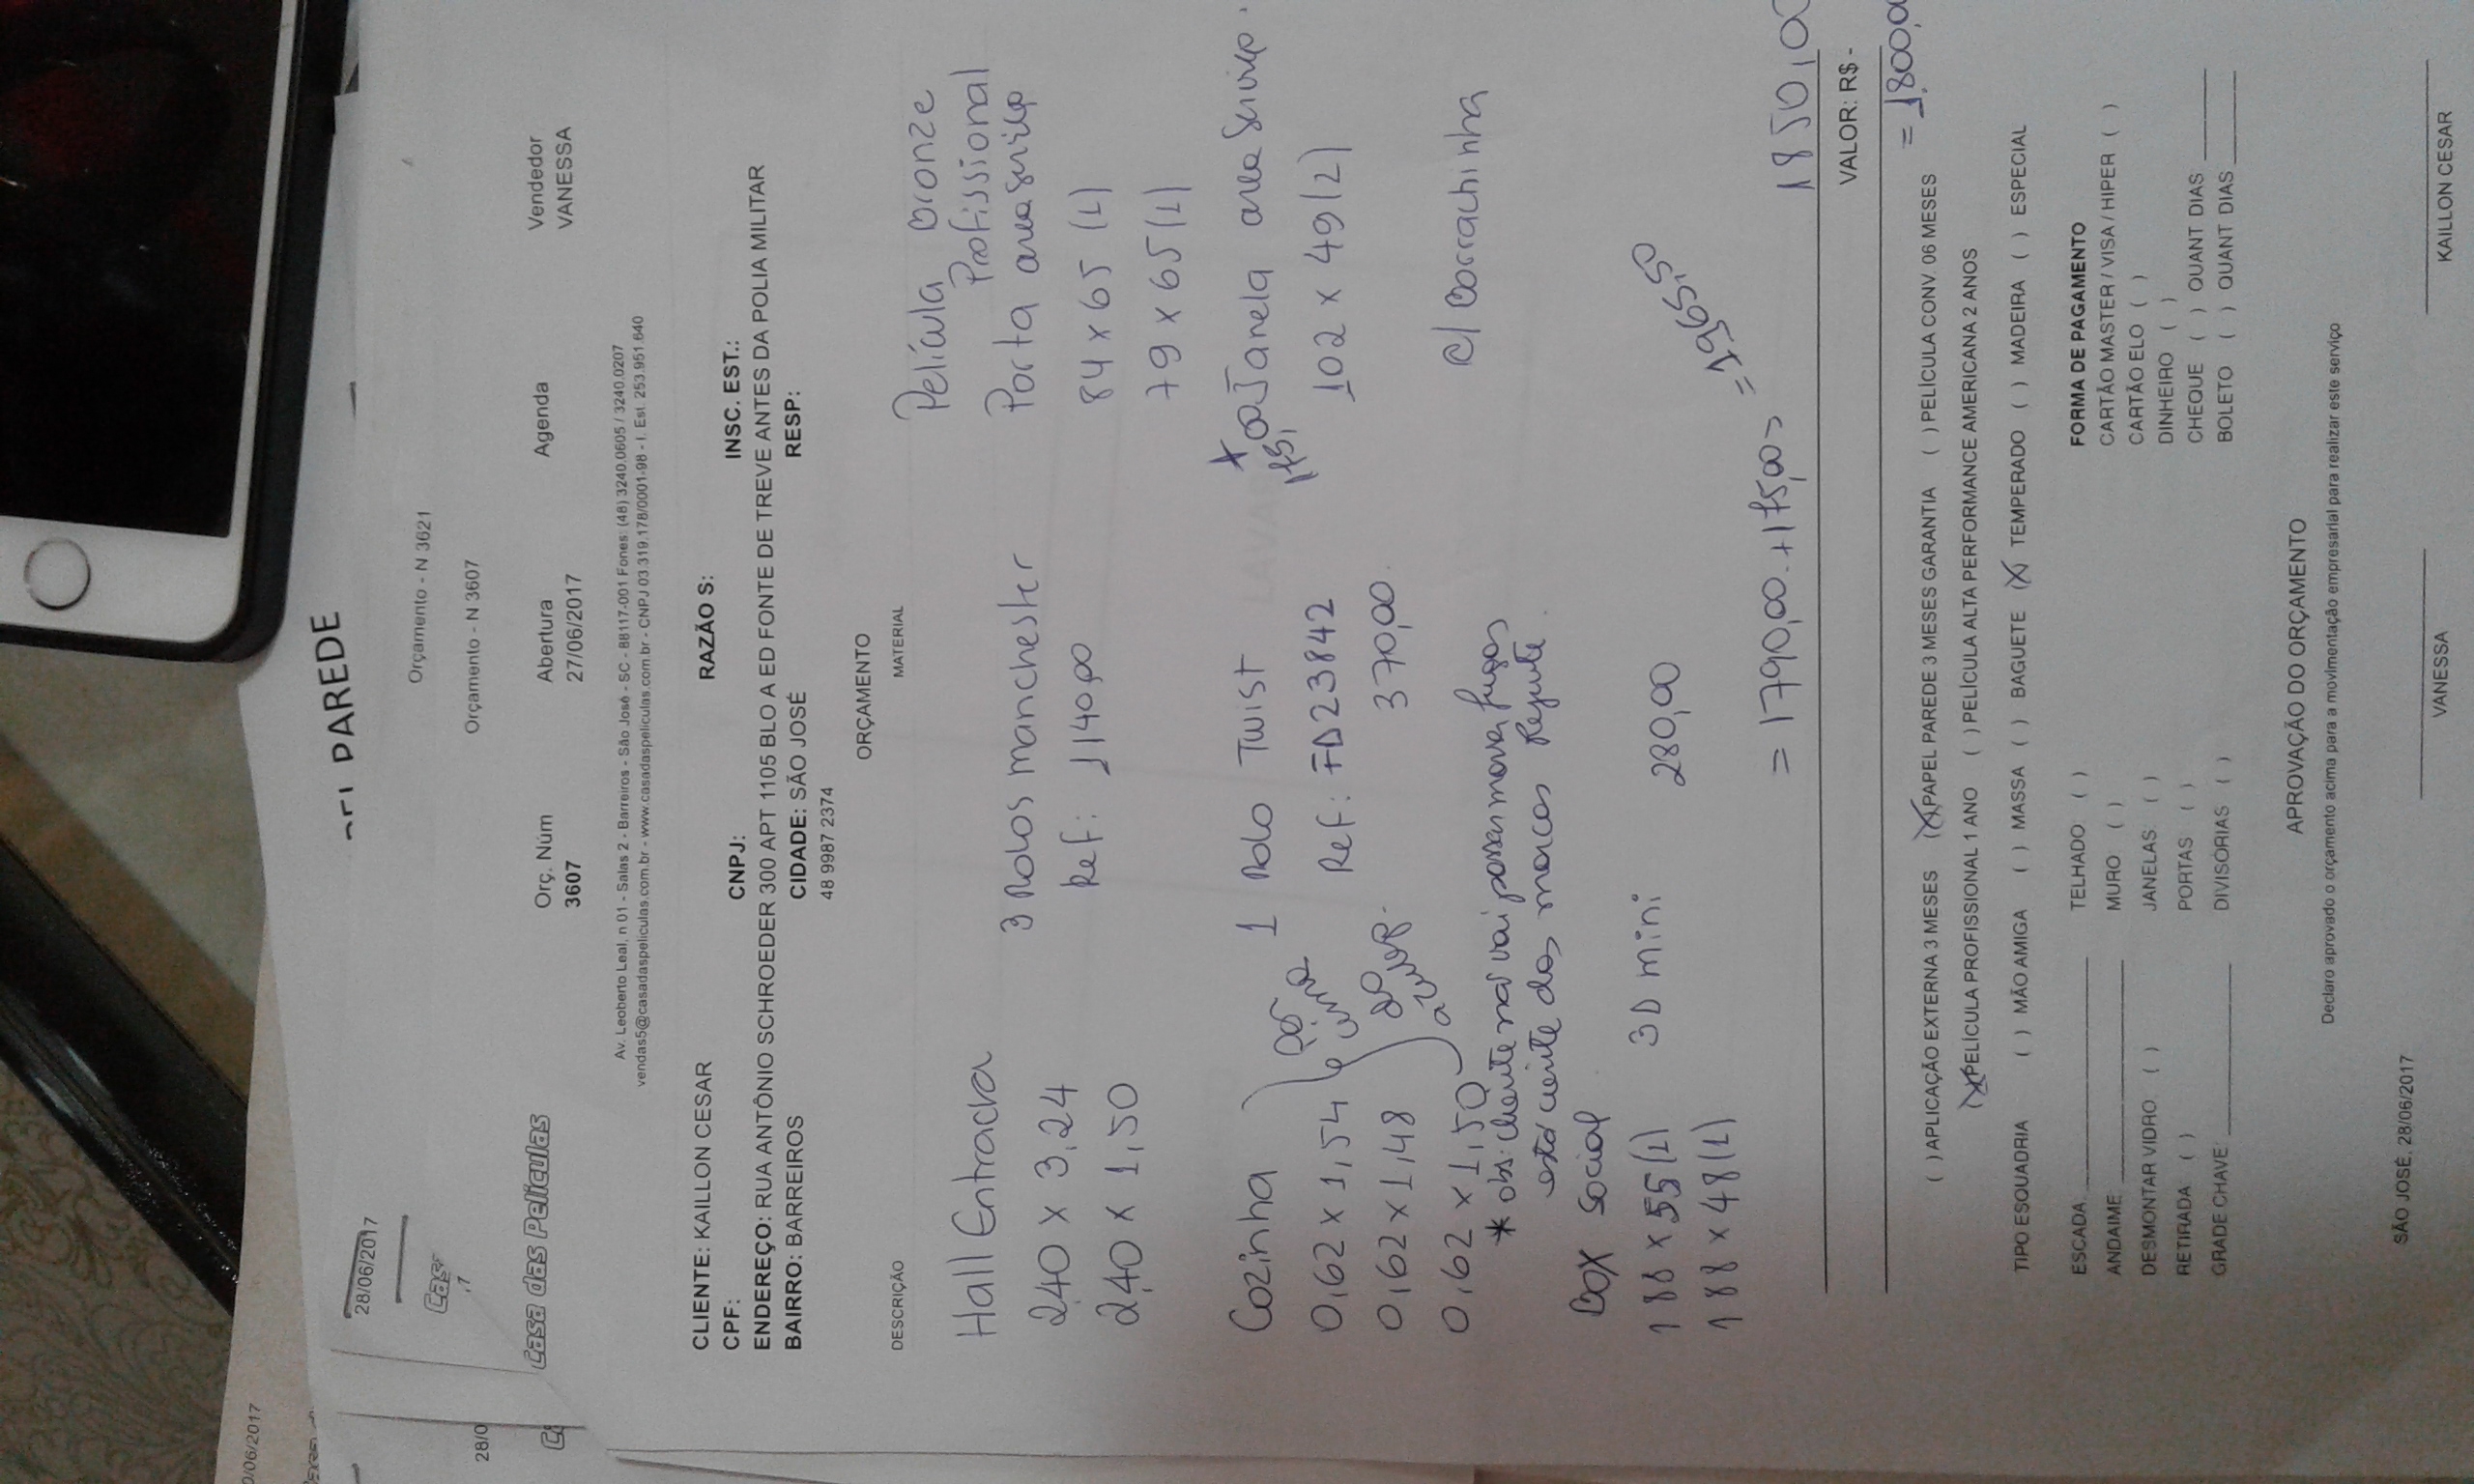 PAREDE
Orçamento - N 3621
28/06/2017
Orçamento - N 3607
Casa das Películas
Orç. Núm
3607
Abertura
27/06/2017
Agenda
Vendedor
VANESSA
Av. Leoberto Leal, n 01 - Salas 2 - Barreiros - São José - SC - 88117-001 Fones: (48) 3240.0605 / 3240.0207
vendas5@casadaspeliculas.com.br - www.casadaspeliculas.com.br - CNPJ 03.319.178/0001-98 - I. Est. 253.951.640
CLIENTE: KAILLON CESAR RAZÃO S:
CPF: CNPJ: INSC. EST.:
ENDEREÇO: RUA ANTÔNIO SCHROEDER 300 APT 1105 BLO A ED FONTE DE TREVE ANTES DA POLIA MILITAR
BAIRRO: BARREIROS CIDADE: SÃO JOSÉ RESP:
48 9987 2374
ORÇAMENTO
DESCRIÇÃO MATERIAL
Hall Entrada
2,40 x 3,24
2,40 x 1,50
3 Rolos manchester
Ref: 1140,00
Película Bronze
Profissional
Porta area serviço
84 x 65 (1)
79 x 65 (1)
Cozinha
0,62 x 1,54
0,62 x 1,48
0,62 x 1,50
1 Rolo Twist
Ref: FD23842
370,00.
* Janela area serviço.
175,00
102 x 49 (2)
c/ borrachinha
* obs: cliente não vai passar massa fugas
está ciente das marcas Rejunte.
BOX Social
188 x 55 (1)
188 x 48 (1)
3D mini 280,00
= 1790,00. + 175,00 = = 1965,50
1850,00
VALOR: R$ -
= 1800,0
( ) APLICAÇÃO EXTERNA 3 MESES (X) PAPEL PAREDE 3 MESES GARANTIA ( ) PELÍCULA CONV. 06 MESES
(X) PELÍCULA PROFISSIONAL 1 ANO ( ) PELÍCULA ALTA PERFORMANCE AMERICANA 2 ANOS
TIPO ESQUADRIA ( ) MÃO AMIGA ( ) MASSA ( ) BAGUETE (X) TEMPERADO ( ) MADEIRA ( ) ESPECIAL
ESCADA TELHADO: ( )
ANDAIME MURO ( )
DESMONTAR VIDRO: ( ) JANELAS: ( )
RETIRADA ( ) PORTAS ( )
GRADE CHAVE: DIVISÓRIAS ( )
FORMA DE PAGAMENTO
CARTÃO MASTER / VISA / HIPER ( )
CARTÃO ELO ( )
DINHEIRO ( )
CHEQUE ( ) QUANT DIAS
BOLETO ( ) QUANT DIAS
APROVAÇÃO DO ORÇAMENTO
Declaro aprovado o orçamento acima para a movimentação empresarial para realizar este serviço
SÃO JOSÉ, 28/06/2017
VANESSA
KAILLON CESAR